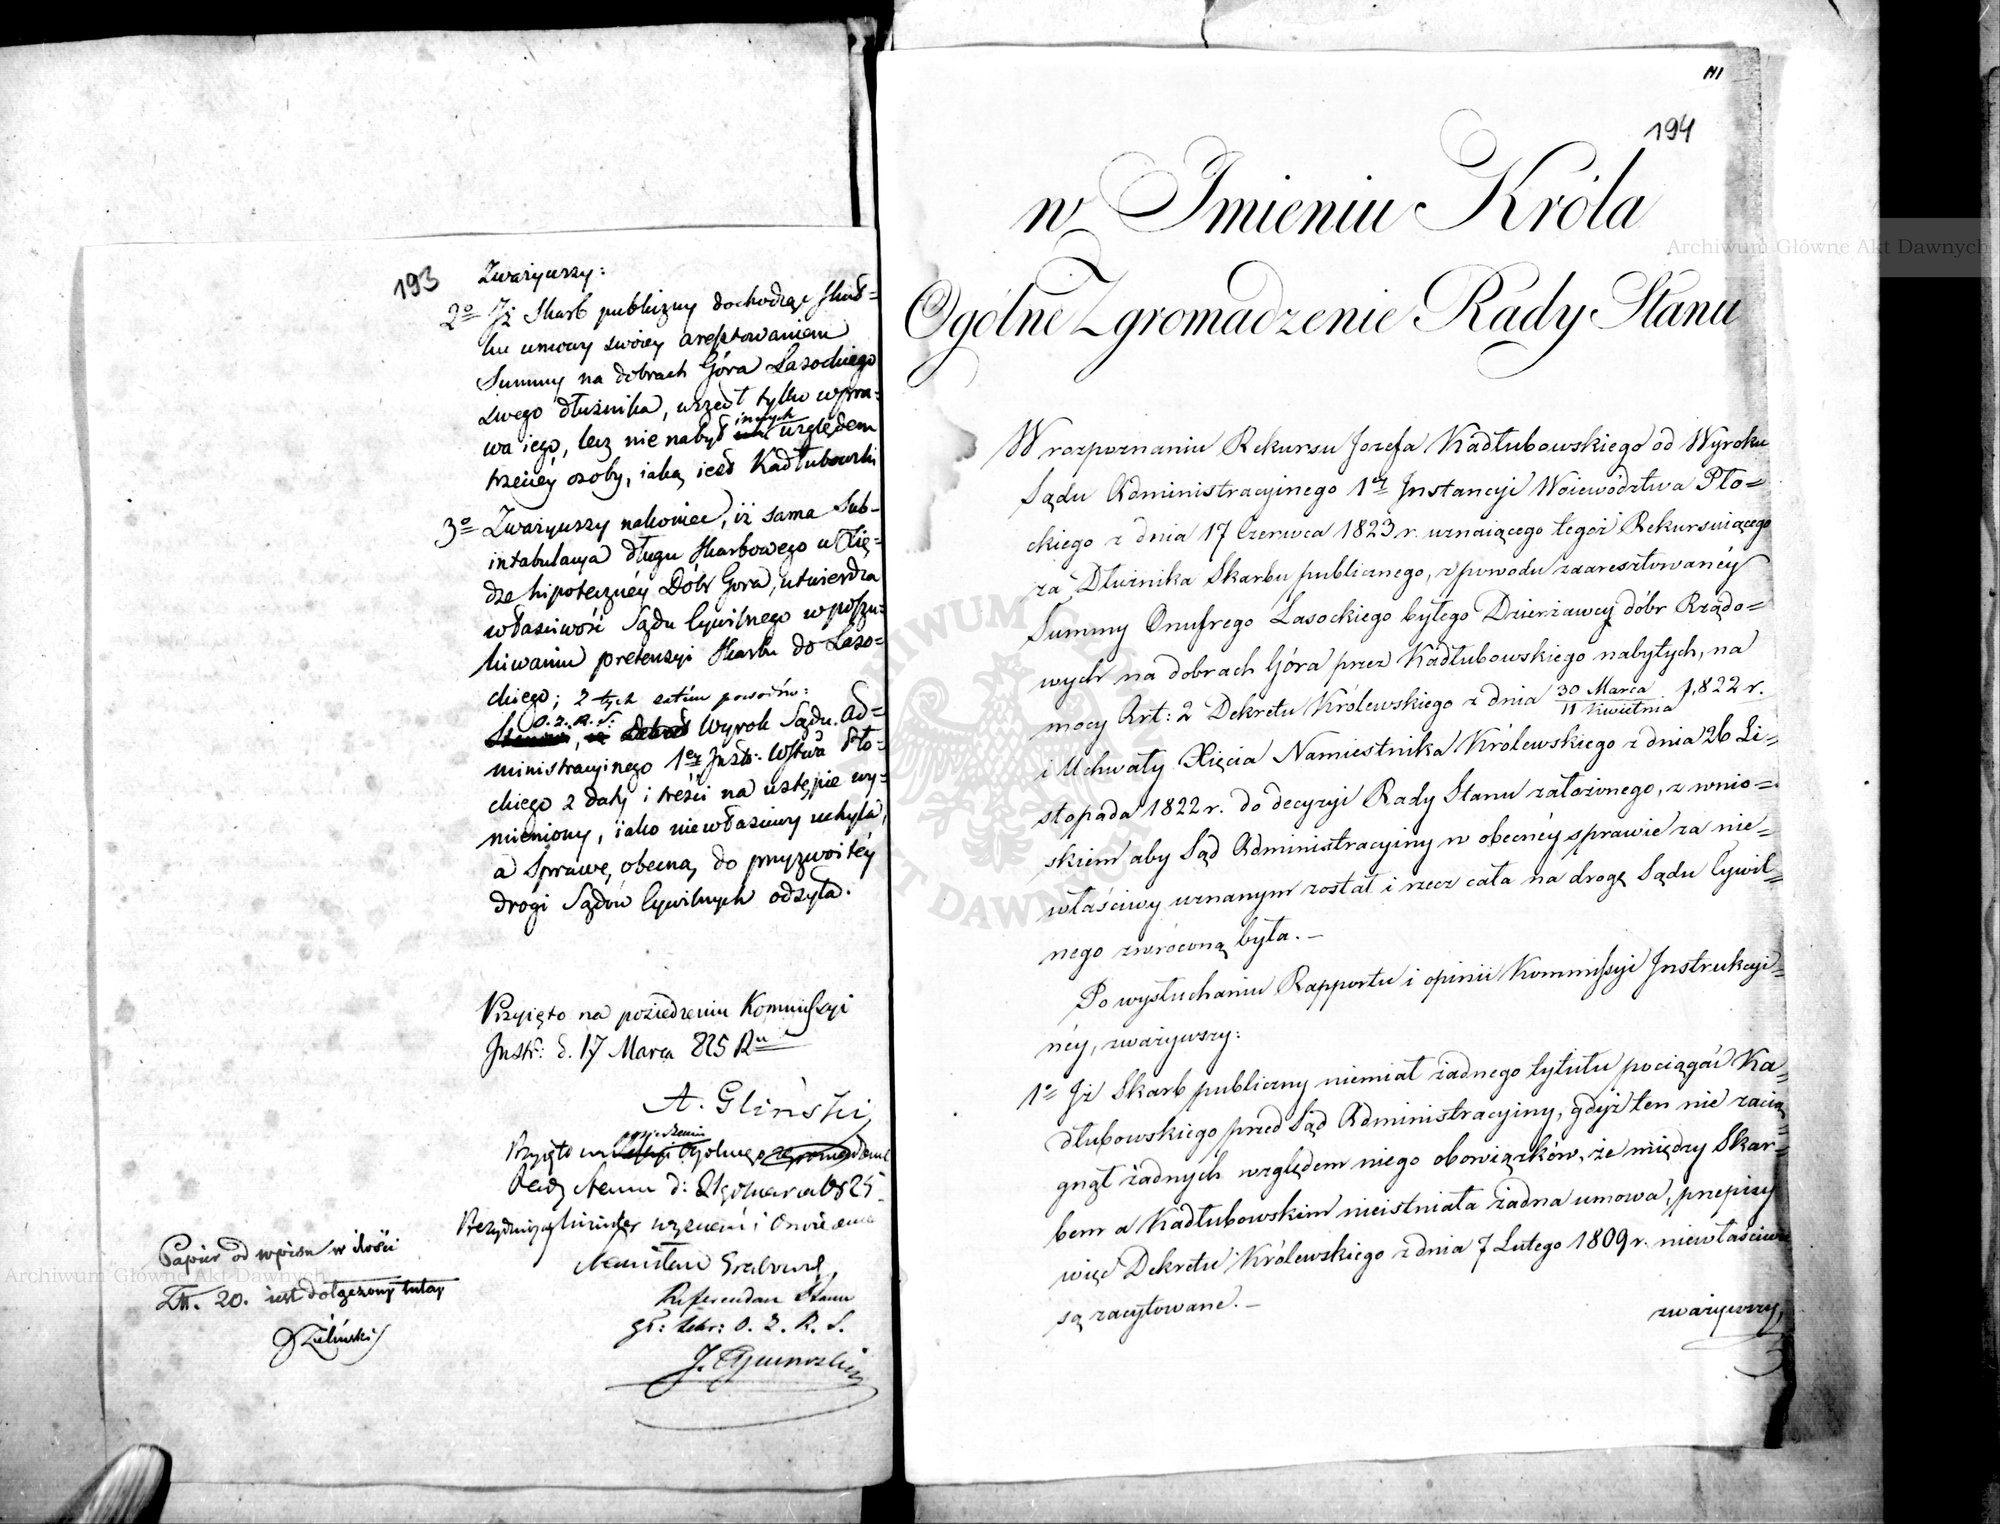 193
Zważywszy:
2o Jż Skarb publiczny dochodząc skut=
ku umowy swoiey aresztowaniem
Summy na dobrach Góra Lasockiego
swego dłużnika, wszedł tylko w pra=
wa iego, lecz nie nabył innych względem
trzeciéy osoby, iaką iest Kadłubowski
3o Zważywszy nakoniec, iż sama Sub-
intabulacya długu Skarbowego w Xię=
dze hipotecznéy Dóbr Gora, utwierdza
właściwość Sądu Cywilnego w poszu=
kiwaniu pretensyi Skarbu do Laso=
ckiego; z tych zatém powodów:
O. Z. R. S. Wyrok Sądu Ad=
ministracyinego 1ey Jnst: Wztwa Pło=
ckiego z daty i treści na wstępie wy=
mieniony, iako niewłaściwy uchyla,
a Sprawę obecną, do przyzwoitéy
drogi Sądów Cywilnych odsyła.
Przyięto na posiedzeniu Kommissyi
Jnstr: d. 17 Marca 825 Ru
A. Gliński
Przyięto na posiedzeniu Ogólnego
Rady Stanu d: 1825
Prezyduiący Minister wyznań i Oświecenia
Stanisław Grabowski
Referendarz Stanu
gł: Sekr: O. Z. R. S.
J.
Papier od wpisu w ilości
Złt. 20. iest dołączony tutay
Zieliński
III
194
w Jmieniu Króla
Ogólne Zgromadzenie Rady Stanu
W rozpoznaniu Rekursu Jozefa Kadłubowskiego od Wyroku
Sądu Administracyinego 1ey Jnstancyi Woiewództwa Pło=
ckiego z dnia 17 Czerwca 1823 r. uznaiącego tegoż Rekursuiącego
za Dłużnika Skarbu publicznego, z powodu zaaresztowanéy
Summy Onufrego Lasockiego byłego Dzierżawcy dóbr Rządo=
wych na dobrach Góra przez Kadłubowskiego nabytych, na
mocy Art: 2 Dekretu Królewskiego z dnia 30 Marca / 11 Kwietnia 1,822 r.
i Uchwały Xięcia Namiestnika Królewskiego z dnia 26 Li=
stopada 1822 r. do decyzyi Rady Stanu założonego, z wnio=
skiem aby Sąd Administracyiny w obecnéy sprawie za nie=
właściwy uznanym został i rzecz cała na drogę Sądu Cywil=
nego zwróconą była. –
Po wysłuchaniu Rapportu i opinii Kommissyi Jnstrukcyi=
néy, zważywszy:
1o Jż Skarb publiczny niemiał żadnego tytułu pociągać Ka=
dłubowskiego przed Sąd Administracyiny, gdyż ten nie zacią=
gnął żadnych względem niego obowiązków, że między Skar=
bem a Kadłubowskim nieistniała żadna umowa, przepisy
więc Dekretu Królewskiego z dnia 7 Lutego 1809 r. niewłaściwie
są zacytowane. –
zważywszy,
Archiwum Główne Akt Dawnych
Archiwum Główne Akt Dawnych
ARCHIWUM GŁÓWNE AKT DAWNYCH